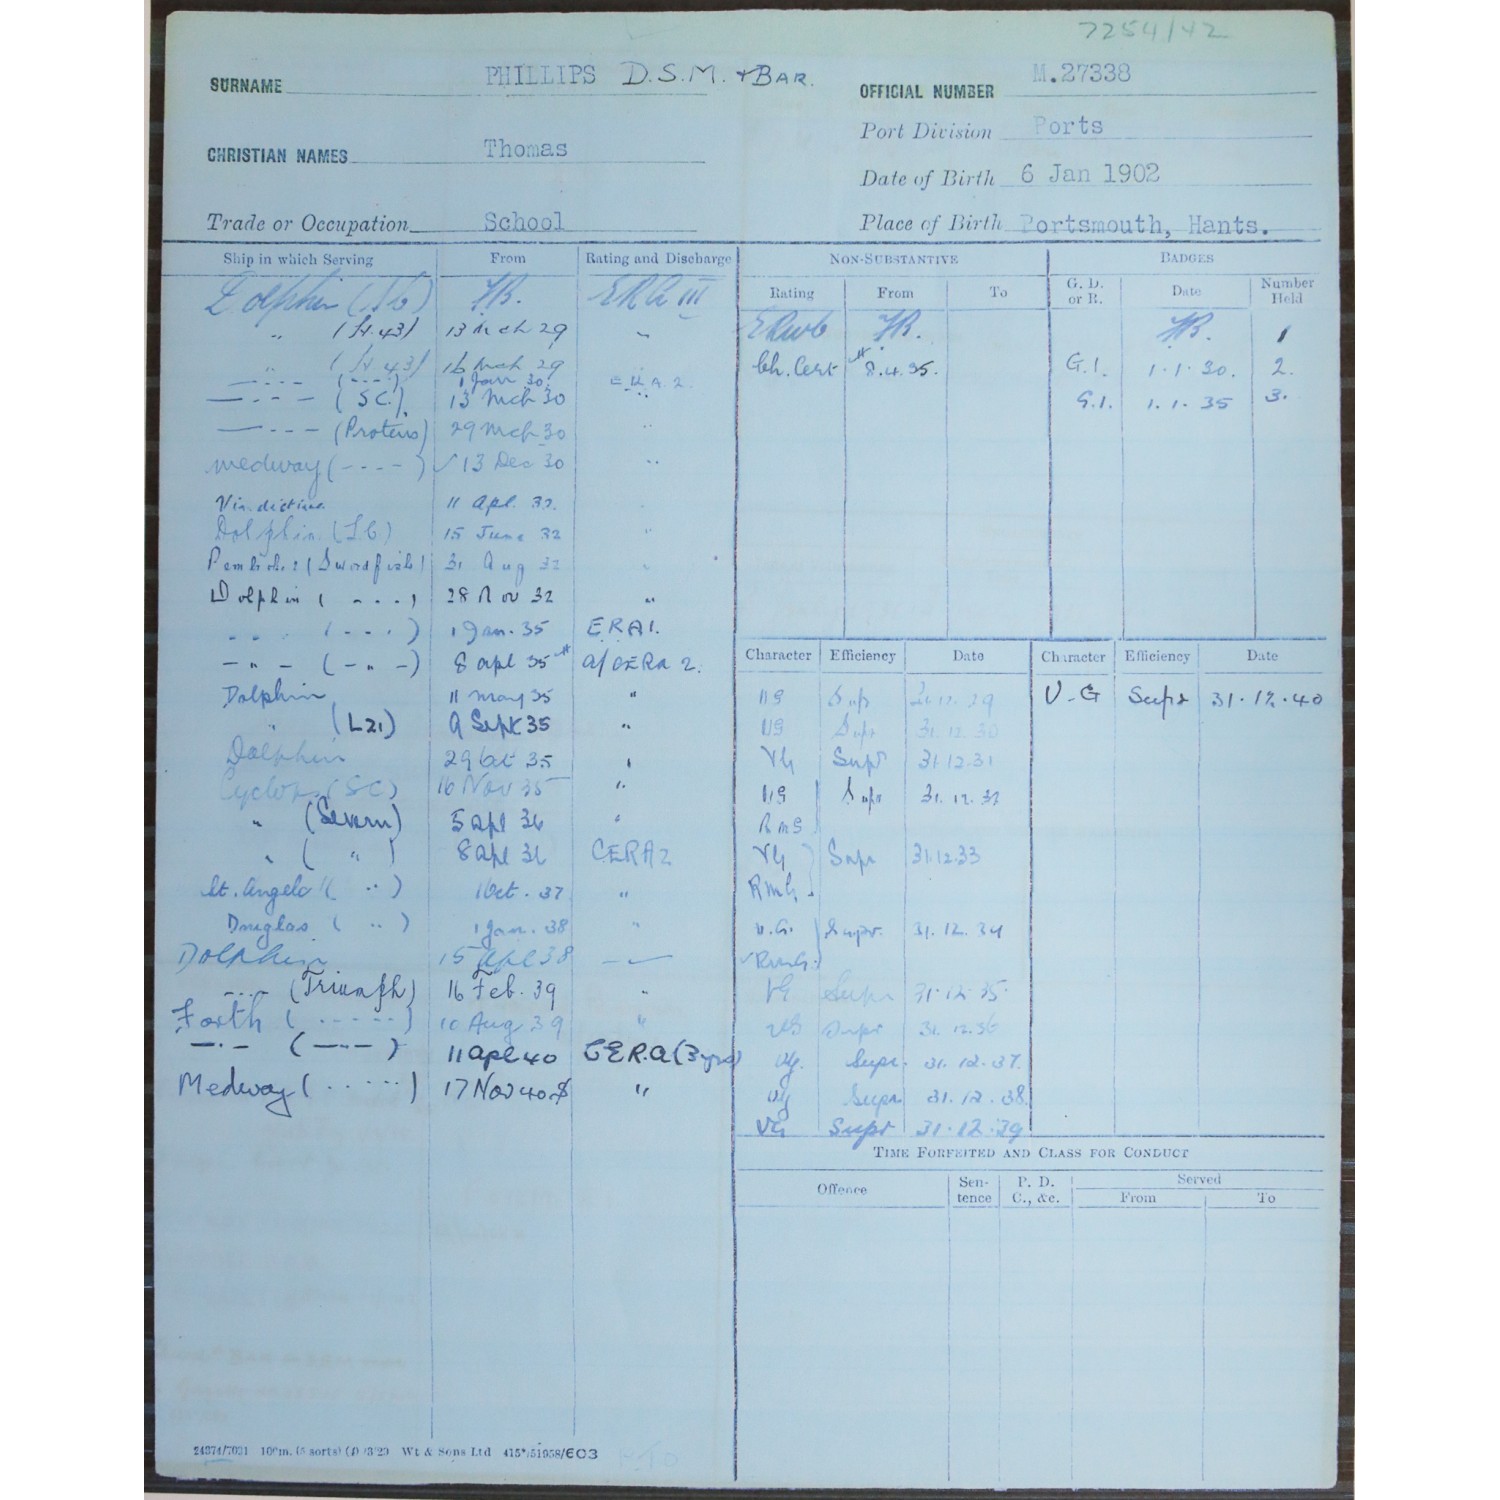 7254/42
SURNAME PHILLIPS D.S.M. + BAR.
OFFICIAL NUMBER M.27338
Port Division Ports
CHRISTIAN NAMES Thomas
Date of Birth 6 Jan 1902
Trade or Occupation School
Place of Birth Portsmouth, Hants.
Ship in which Serving From Rating and Discharge
Dolphin (L6) FR. ERA III
" (H.43) 13 Mch 29 "
" (H 43) 16 Mch 29
—·-·- (-·-·-) 1 Jan 30. E.R.A.2.
—·-·- (SC.) 13 Mch 30 "
—·-·- (Proteus) 29 Mch 30 "
Medway (-·-·-) 13 Dec 30 "
Vindictive. 11 Apl. 32.
Dolphin (L6) 15 June 32 "
Pembroke (Swordfish) 31 Aug 32 "
Dolphin ( -·-·- ) 28 Nov 32 "
-·-·- ( -·-·- ) 1 Jan. 35 ERA1.
-"- (-"-) 8 Apl 35 A/CERA 2.
Dolphin 11 May 35 "
" (L21) 9 Sept 35 "
Dolphin 29 Oct 35 "
Cyclops (SC) 16 Nov 35 "
" (Severn) 5 Apl 36 "
" ( " ) 8 Apl 36 CERA2
St. Angelo ( " ) 1 Oct. 37 "
Douglas ( " ) 1 Jan. 38 "
Dolphin 15 Apl 38 -"-
-·-·- (Triumph) 16 Feb. 39 "
Forth ( ----- ) 10 Aug 39 "
-·-·- ( -·-·- ) 11 Apl 40 CERA (3 yrs)
Medway ( ····· ) 17 Nov 40 "
NON-SUBSTANTIVE
Rating From To
FR.
Ch. Cert 8.4.35.
BADGES
G. D. or R. Date Number Held
FR. 1
G.1. 1.1.30. 2.
G.1. 1.1.35 3.
Character Efficiency Date Character Efficiency Date
VG Sup 31.12.29 V-G Supr 31.12.40
VG Supr 31.12.30
VG Supr 31.12.31
VG Supr 31.12.32
RMG
VG Supr 31.12.33
RMG.
V.G. Supr. 31.12.34
RMG.
VG Supr 31.12.35
VG Supr 31.12.36
VG. Supr. 31.12.37.
VG Supr 31.12.38.
VG Supr 31.12.39
TIME FORFEITED AND CLASS FOR CONDUCT
Offence Sentence P. D. C., &c. Served
From To
24374/7031 100m. (5 sorts) (1) /3/29 Wt & Sons Ltd 415*/51958/E03
P.T.O